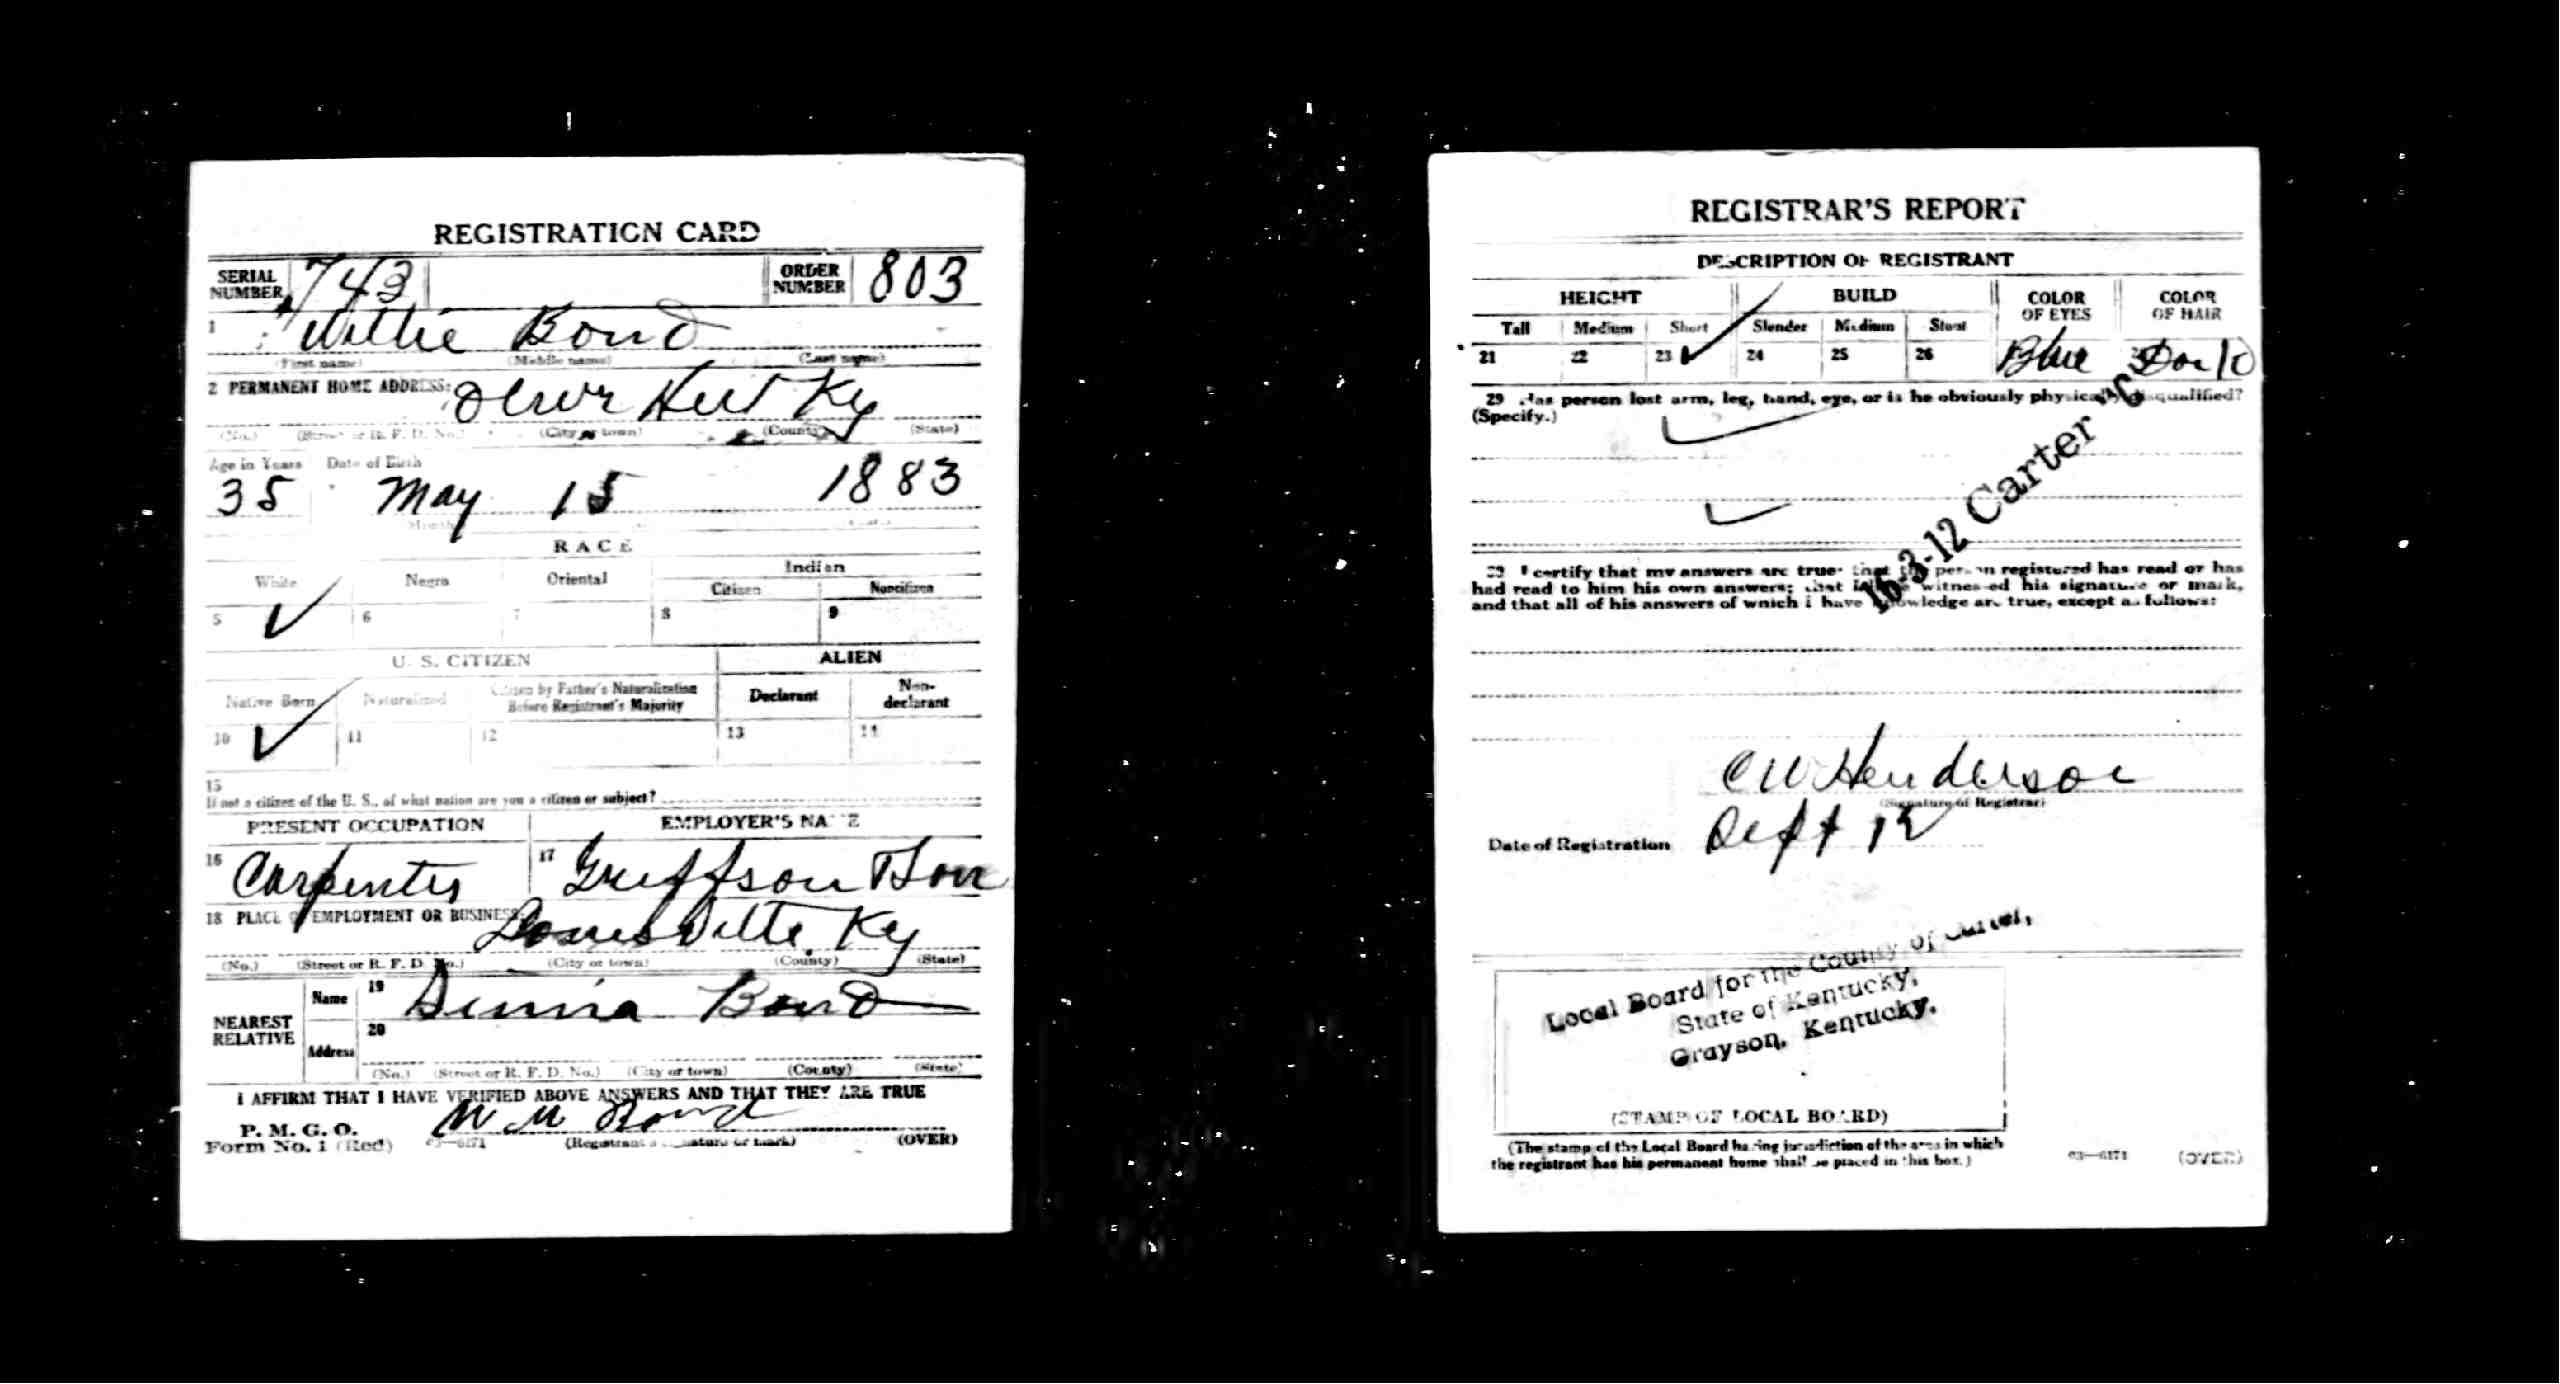 REGISTRATION CARD
SERIAL NUMBER 743 ORDER NUMBER 803
1 Willie Bond
(First name) (Middle name) (Last name)
2 PERMANENT HOME ADDRESS: Olive Hill Ky
(No.) (Street or R. F. D. No.) (City or town) (County) (State)
Age in Years Date of Birth
35 May 15 1883
RACE
White Negro Oriental Indian
Citizen Noncitizen
5 ✓ 6 7 8 9
U. S. CITIZEN ALIEN
Native Born Naturalized Citizen by Father's Naturalization Before Registrant's Majority Declarant Non-declarant
10 ✓ 11 12 13 14
15
If not a citizen of the U. S., of what nation are you a citizen or subject?
PRESENT OCCUPATION EMPLOYER'S NAME
16 Carpenter 17
18 PLACE OF EMPLOYMENT OR BUSINESS: Louisville Ky
(No.) (Street or R. F. D. No.) (City or town) (County) (State)
NEAREST RELATIVE Name 19 Bond
Address 20
(No.) (Street or R. F. D. No.) (City or town) (County) (State)
I AFFIRM THAT I HAVE VERIFIED ABOVE ANSWERS AND THAT THEY ARE TRUE
P. M. G. O.
Form No. 1 (Red) 03—6171 (Registrant's signature or mark) (OVER)
W M Bond
REGISTRAR'S REPORT
DESCRIPTION OF REGISTRANT
HEIGHT BUILD COLOR OF EYES COLOR OF HAIR
Tall Medium Short Slender Medium Stout
21 22 23 ✓ 24 25 26 Blue Dark
29 Has person lost arm, leg, hand, eye, or is he obviously physically disqualified?
(Specify.)
16-3-12 Carter C
I certify that my answers are true; that the person registered has read or has
had read to him his own answers; that I have witnessed his signature or mark,
and that all of his answers of which I have knowledge are true, except as follows:
C W Henderson
(Signature of Registrar)
Date of Registration Sept 12
Local Board for the County of Carter,
State of Kentucky,
Grayson, Kentucky.
(STAMP OF LOCAL BOARD)
(The stamp of the Local Board having jurisdiction of the area in which
the registrant has his permanent home shall be placed in this box.)
03—6171 (OVER)